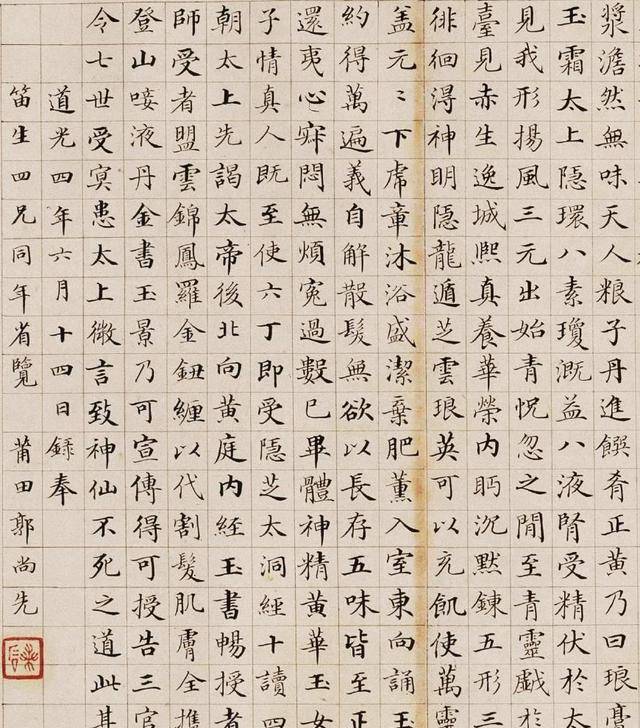 漿澹然無味天人粮子丹進饌肴正黃乃曰琅膏
玉霜太上隱環八素瓊溉益八液腎受精伏於太
見我形揚風三元出始青怳忽之閒至青靈戲於
臺見赤生逸城熙真養華榮內眄沉默鍊五形三
徘徊淂神明隱龍遁芝雲琅英可以充飢使萬靈
盖元〻下虎章沐浴盛潔棄肥薰入室東向誦玉
約得萬遍義自解散髮無欲以長存五味皆至正
還夷心寂悶無煩寃過數巳畢體神精黃華玉女
子情真人既至使六丁即受隱芝太洞經十讀四
朝太上先謁太帝後北向黃庭內経玉書暢授者
師受者盟雲錦鳳羅金鈕纏以代割髮肌膚全推
登山唼液丹金書玉景乃可宣傳得可授告三官
令七世受冥患太上微言致神仙不死之道此其
道光四年六月十四日錄奉
笛生四兄同年省覽 莆田郭尚先